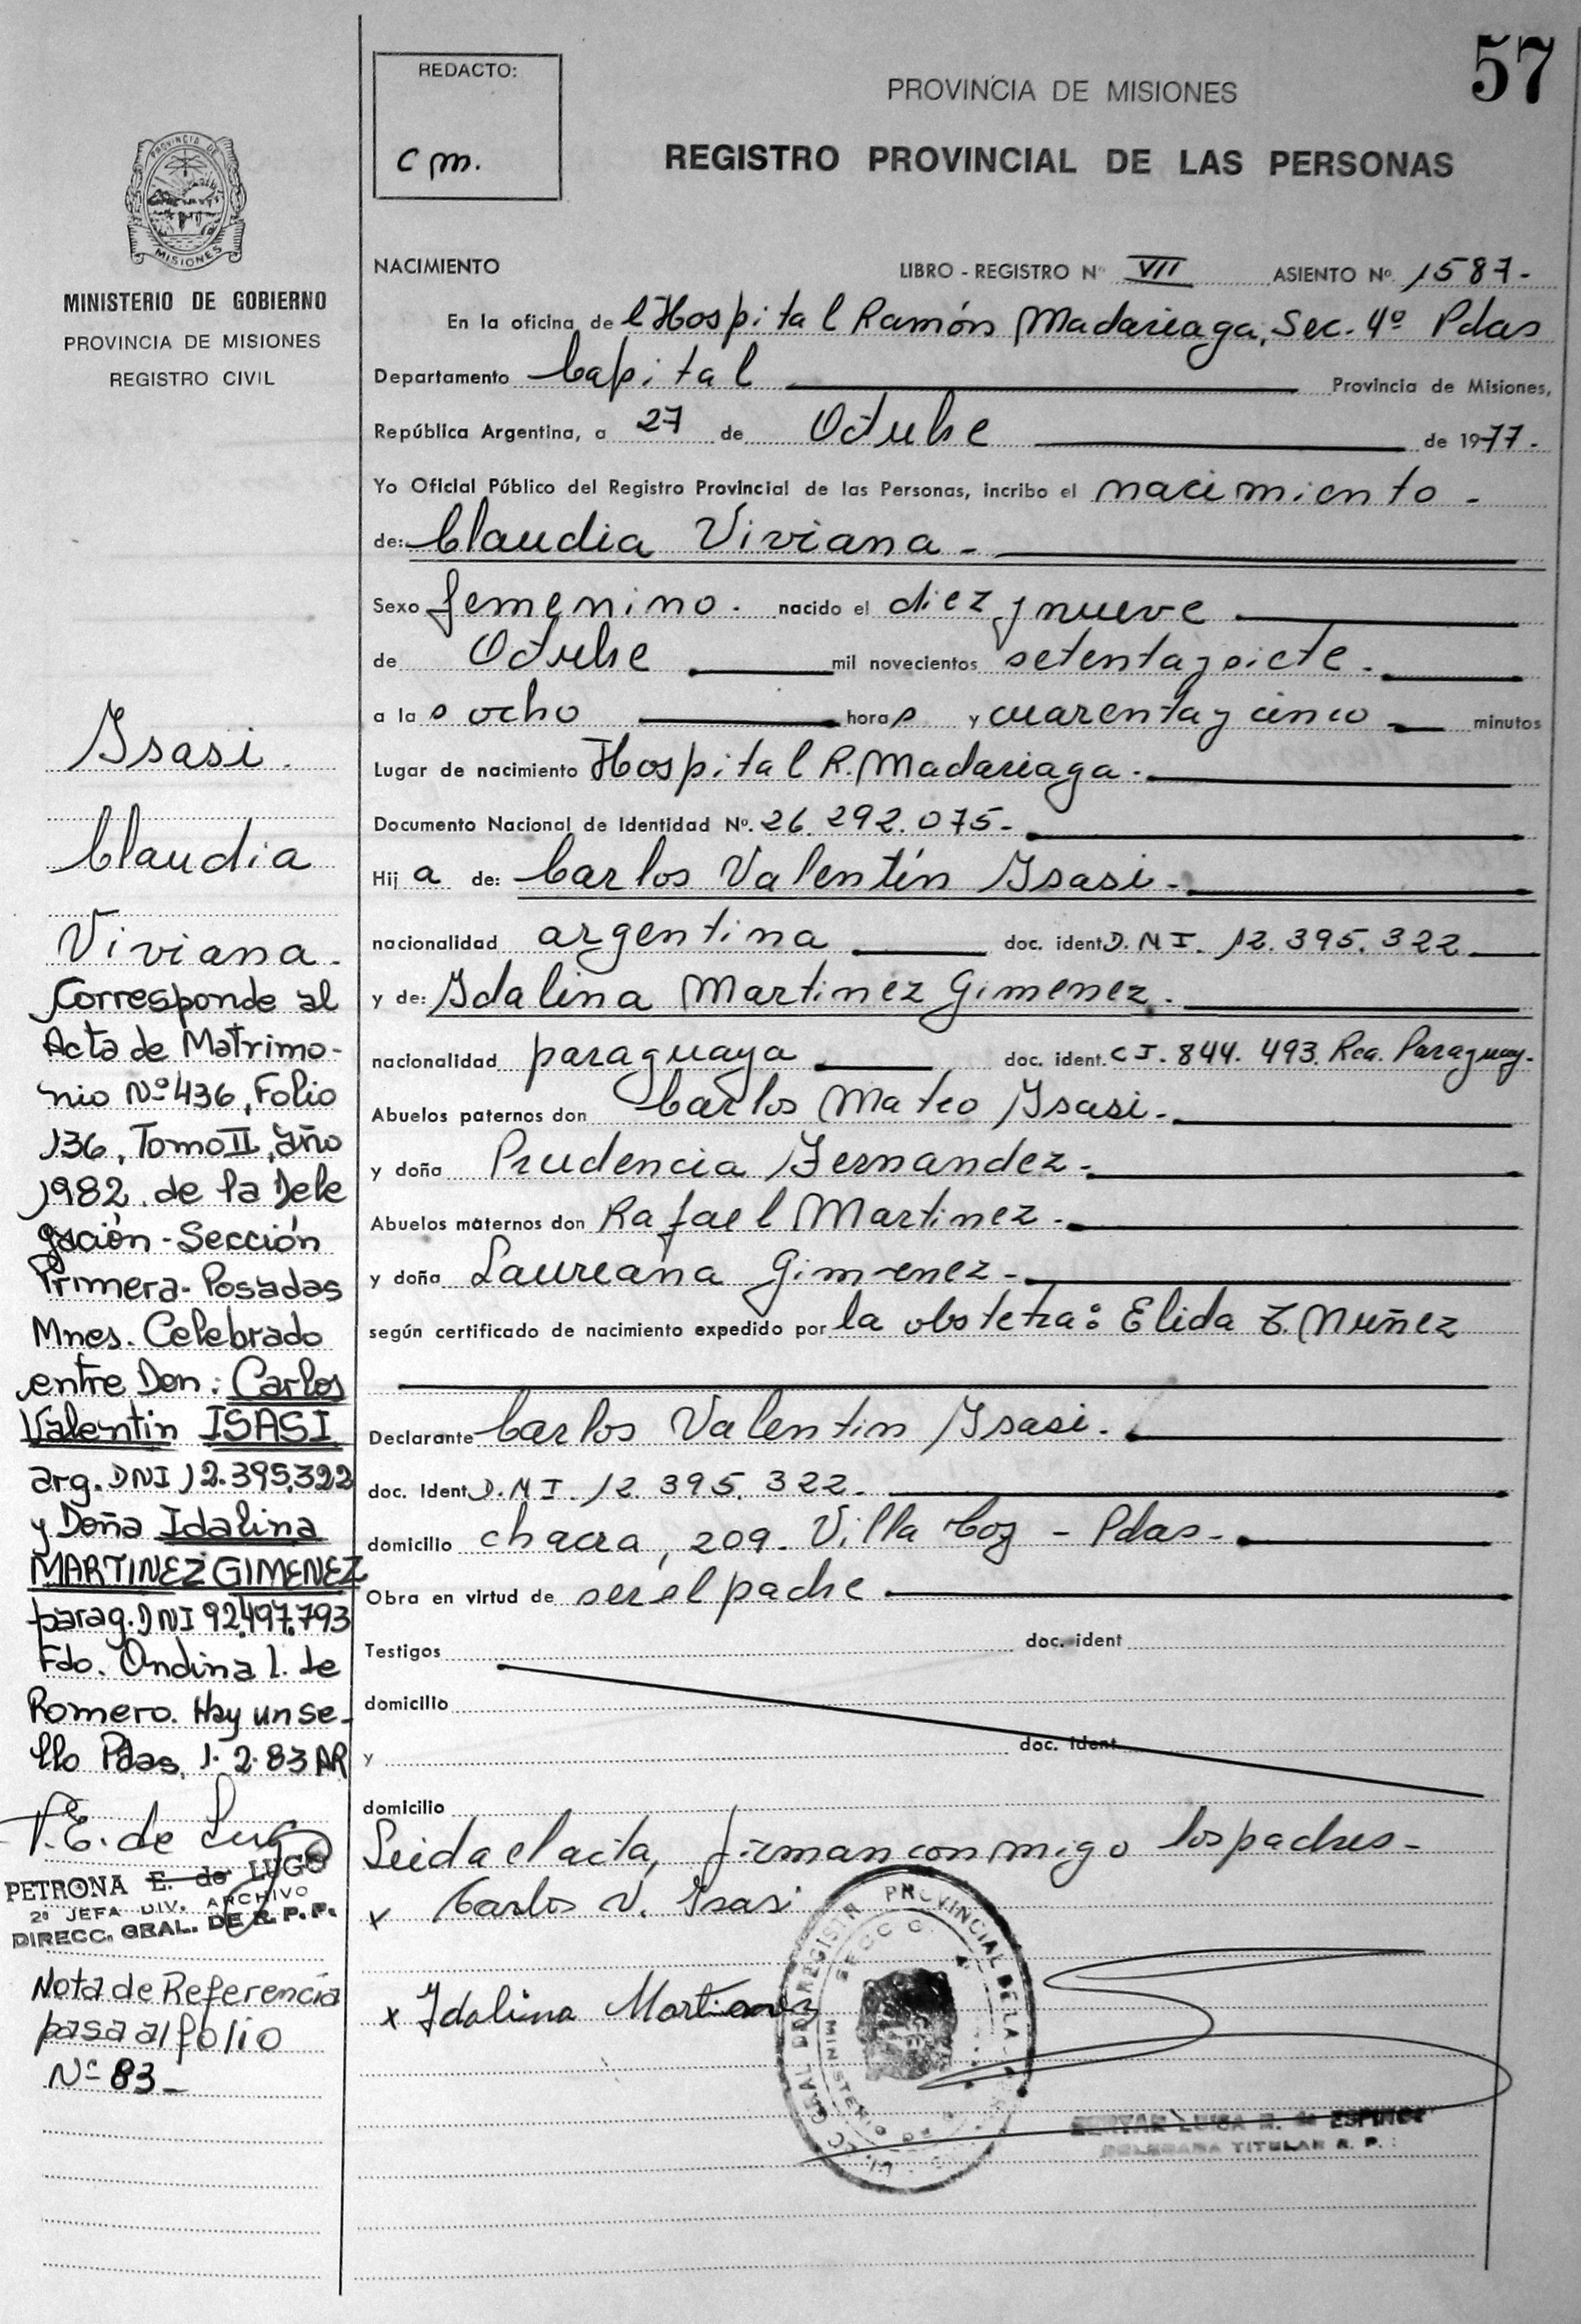 57
REDACTO:
cm.
PROVINCIA DE MISIONES
REGISTRO PROVINCIAL DE LAS PERSONAS
PROVINCIA DE
MISIONES
MINISTERIO DE GOBIERNO
PROVINCIA DE MISIONES
REGISTRO CIVIL
NACIMIENTO LIBRO - REGISTRO Nº VII ASIENTO Nº 1587-
En la oficina de l Hospital Ramón Madariaga, Sec. 4º Pdas
Departamento Capital Provincia de Misiones,
República Argentina, a 27 de Octubre de 1977-
Yo Oficial Público del Registro Provincial de las Personas, incribo el nacimiento -
de: Claudia Viviana -
Sexo femenino. nacido el diez y nueve
de Octubre mil novecientos setenta y siete -
a la s ocho hora s y cuarenta y cinco minutos
Lugar de nacimiento Hospital R. Madariaga -
Documento Nacional de Identidad Nº. 26.292.075-
Hij a de: Carlos Valentín Isasi -
nacionalidad argentina doc. ident D.N I. 12.395.322
y de: Idalina Martinez Gimenez.
nacionalidad paraguaya doc. ident. C I. 844.493. Rca. Paraguay-
Abuelos paternos don Carlos Mateo Isasi -
y doña Prudencia Fernandez -
Abuelos maternos don Rafael Martinez -
y doña Laureana Gimenez -
según certificado de nacimiento expedido por la obstetra: Elida Z. Nuñez
Declarante Carlos Valentin Isasi.
doc. Ident D.N I. 12.395.322-
domicilio chacra, 209- Villa Coz - Pdas-
Obra en virtud de ser el padre
Testigos doc. ident
domicilio
y doc. ident
domicilio
Leida el acta, firman conmigo los padres -
x Carlos V. Isasi
x Idalina Martinez
PROVINCIAL DE LA
MINISTERIO DE
ESPINOZ
DELEGADA TITULAR R. P.
Isasi.
Claudia
Viviana -
Corresponde al
Acta de Matrimo-
nio Nº 436, Folio
136, Tomo II, año
1982. de la Dele
gación - Sección
Primera- Posadas
Mnes. Celebrado
entre Don: Carlos
Valentin ISASI
arg. DNI 12.395.322
y Doña Idalina
MARTINEZ GIMENEZ
parag. DNI 92.497.793
Fdo. Ondina I. de
Romero. Hay un se-
llo Pdas. 1-2-83 AR
P. E. de Lugo
PETRONA E. de LUGO
2ª JEFA DIV. ARCHIVO
DIRECC. GRAL. DE R. P. P.
Nota de Referencia
pasa al folio
Nº 83-